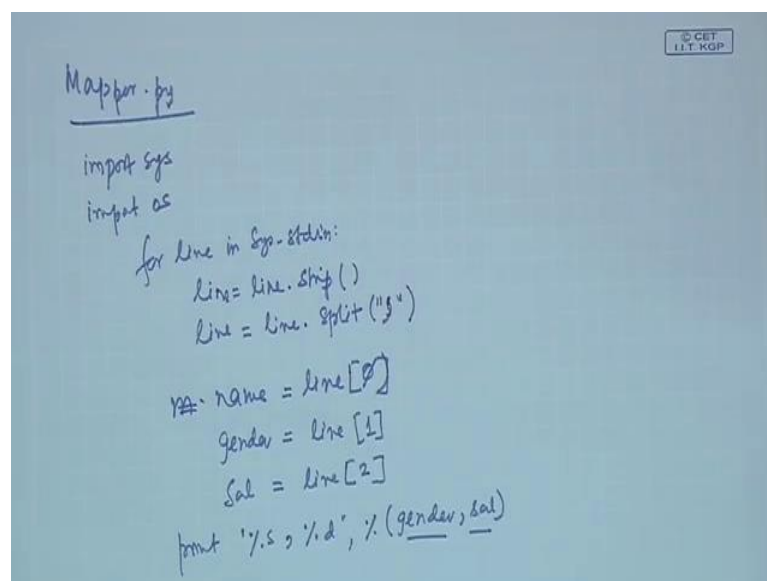 © CET
I.I.T. KGP
Mapper.py
import sys
import os
for line in sys.stdin:
line = line.strip()
line = line.split(",")
name = line[0]
gender = line[1]
Sal = line[2]
print '%s, %d', %(gender, sal)